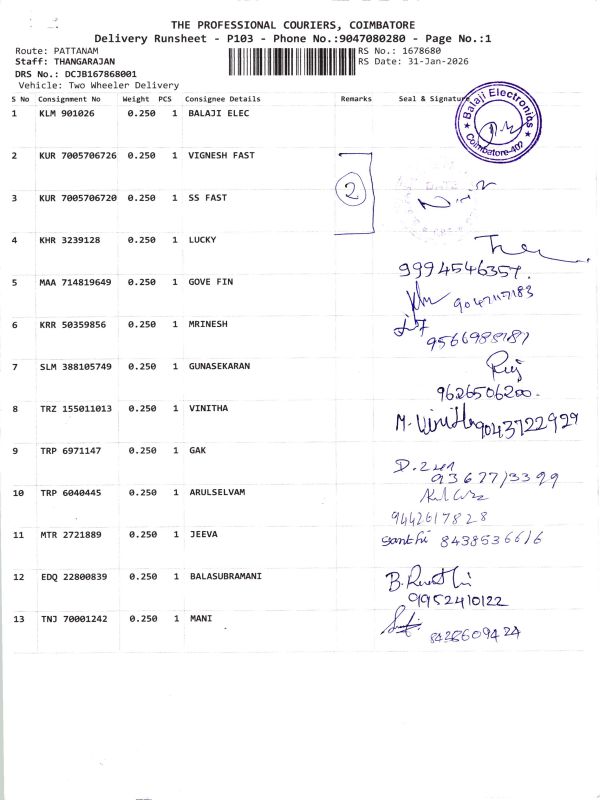 THE PROFESSIONAL COURIERS, COIMBATORE
Delivery Runsheet - P103 - Phone No.:9047080280 - Page No.:1
Route: PATTANAM
Staff: THANGARAJAN
DRS No.: DCJB167868001
Vehicle: Two Wheeler Delivery
RS No.: 1678680
RS Date: 31-Jan-2026
S No Consignment No Weight PCS Consignee Details Remarks Seal & Signature
1 KLM 901026 0.250 1 BALAJI ELEC
Balaji Electronics
Coimbatore-402
2 KUR 7005706726 0.250 1 VIGNESH FAST
2
3 KUR 7005706720 0.250 1 SS FAST
4 KHR 3239128 0.250 1 LUCKY
9994546357.
5 MAA 714819649 0.250 1 GOVE FIN
9047117183
6 KRR 50359856 0.250 1 MRINESH
9566988187
7 SLM 388105749 0.250 1 GUNASEKARAN
9626506200.
8 TRZ 155011013 0.250 1 VINITHA
M. Vinitha 9043722929
9 TRP 6971147 0.250 1 GAK
9367713399
10 TRP 6040445 0.250 1 ARULSELVAM
9442617828
11 MTR 2721889 0.250 1 JEEVA
santhi 8438536616
12 EDQ 22800839 0.250 1 BALASUBRAMANI
9952410122
13 TNJ 70001242 0.250 1 MANI
8428609424